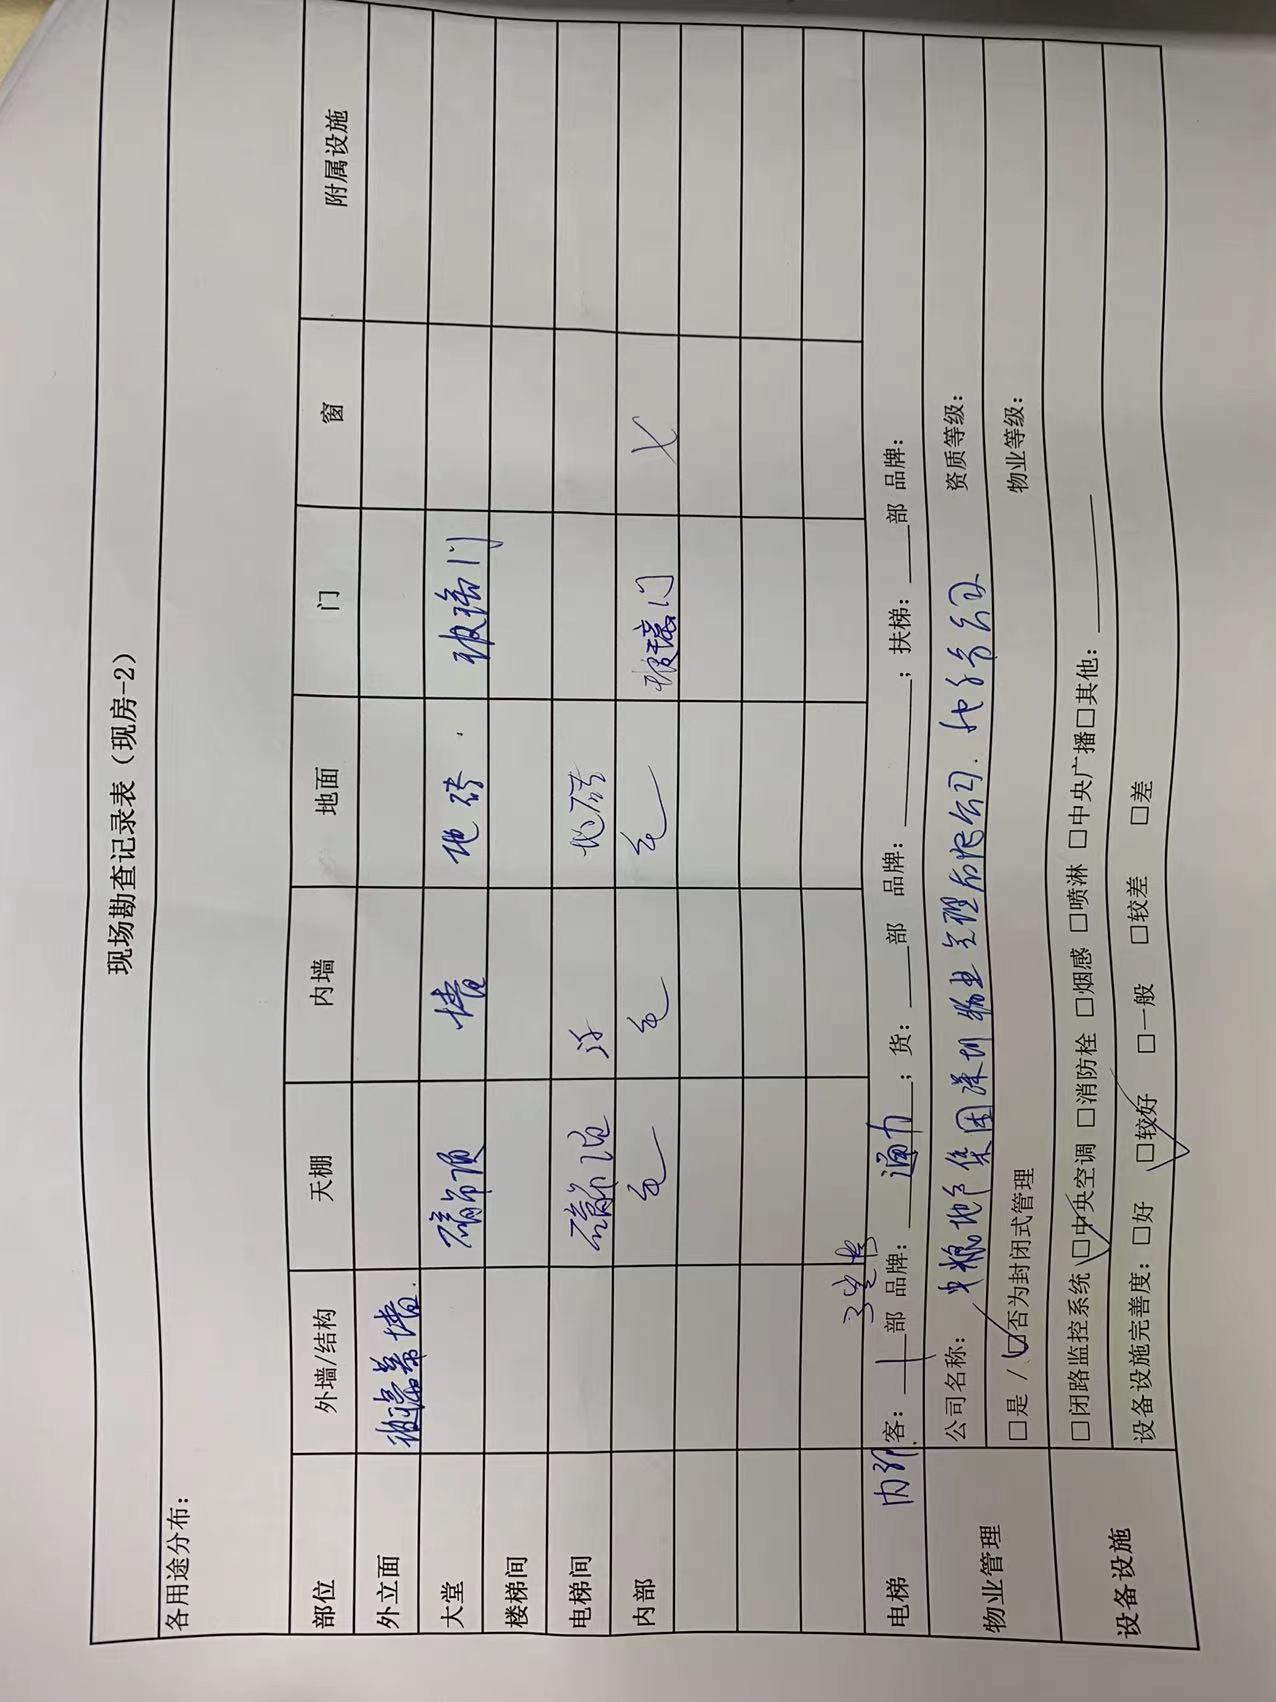 现场勘查记录表（现房-2）
各用途分布：
部位 外墙/结构 天棚 内墙 地面 门 窗 附属设施
外立面 玻璃幕墙
大堂 吊顶 墙 地砖 玻璃门
楼梯间
电梯间 地砖
内部 毛 毛 毛 玻璃门 X
电梯 内部 客：1部 品牌：通力；货：___部 品牌：______；扶梯：___部 品牌：
物业管理 公司名称：中粮地产集团深圳物业管理有限公司 分公司 资质等级：
□是 / ☑否为封闭式管理 物业等级：
设备设施 □闭路监控系统 ☑中央空调 □消防栓 □烟感 □喷淋 □中央广播 □其他：______
设备设施完善度：□好 ☑较好 □一般 □较差 □差